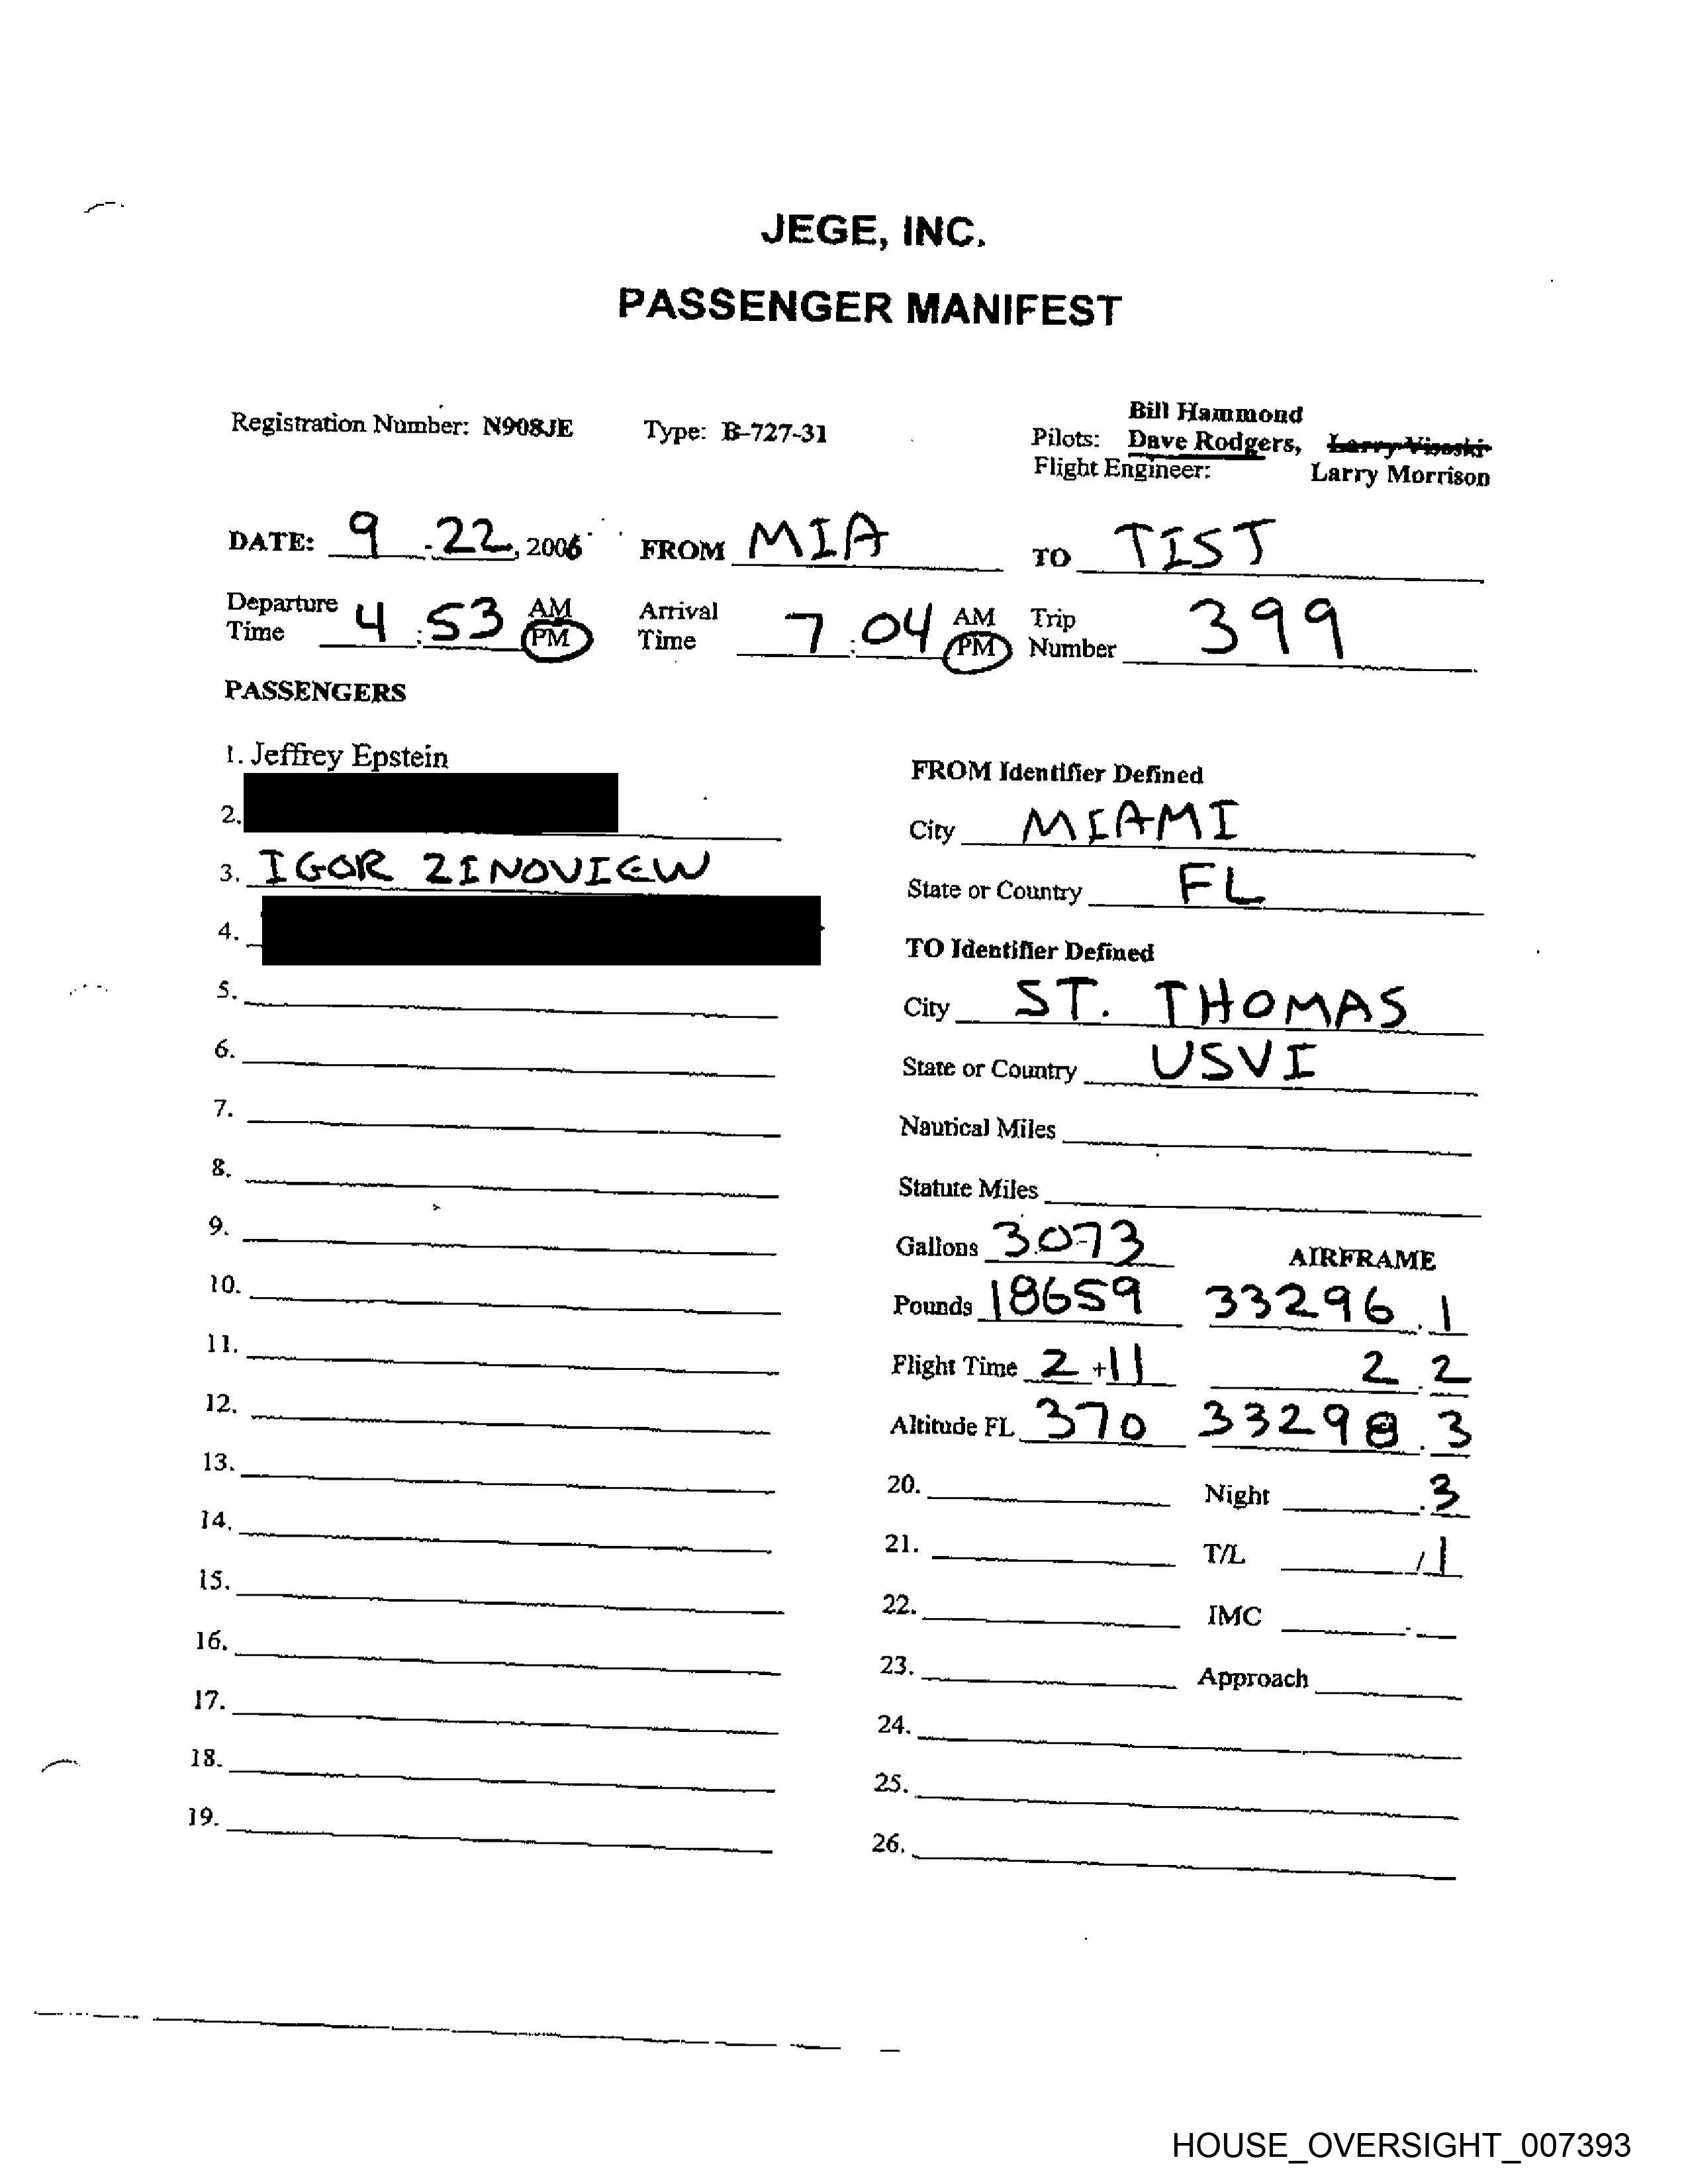 JEGE, INC.
PASSENGER MANIFEST
Bill Hammond
Registration Number: N908JE Type: B-727-31 Pilots: Dave Rodgers, Larry Visoski
Flight Engineer: Larry Morrison
DATE: 9 . 22, 2006 FROM MIA TO TIST
Departure Time 4 : 53 AM PM Arrival Time 7 : 04 AM PM Trip Number 399
PASSENGERS
1. Jeffrey Epstein
2.
3. IGOR ZINOVIEW
4.
5.
6.
7.
8.
9.
10.
11.
12.
13.
14.
15.
16.
17.
18.
19.
FROM Identifier Defined
City MIAMI
State or Country FL
TO Identifier Defined
City ST. THOMAS
State or Country USVI
Nautical Miles
Statute Miles
Gallons 3073 AIRFRAME
Pounds 18659 33296.1
Flight Time 2 +11 2.2
Altitude FL 370 33298.3
20. Night .3
21. T/L /1
22. IMC
23. Approach
24.
25.
26.
HOUSE_OVERSIGHT_007393